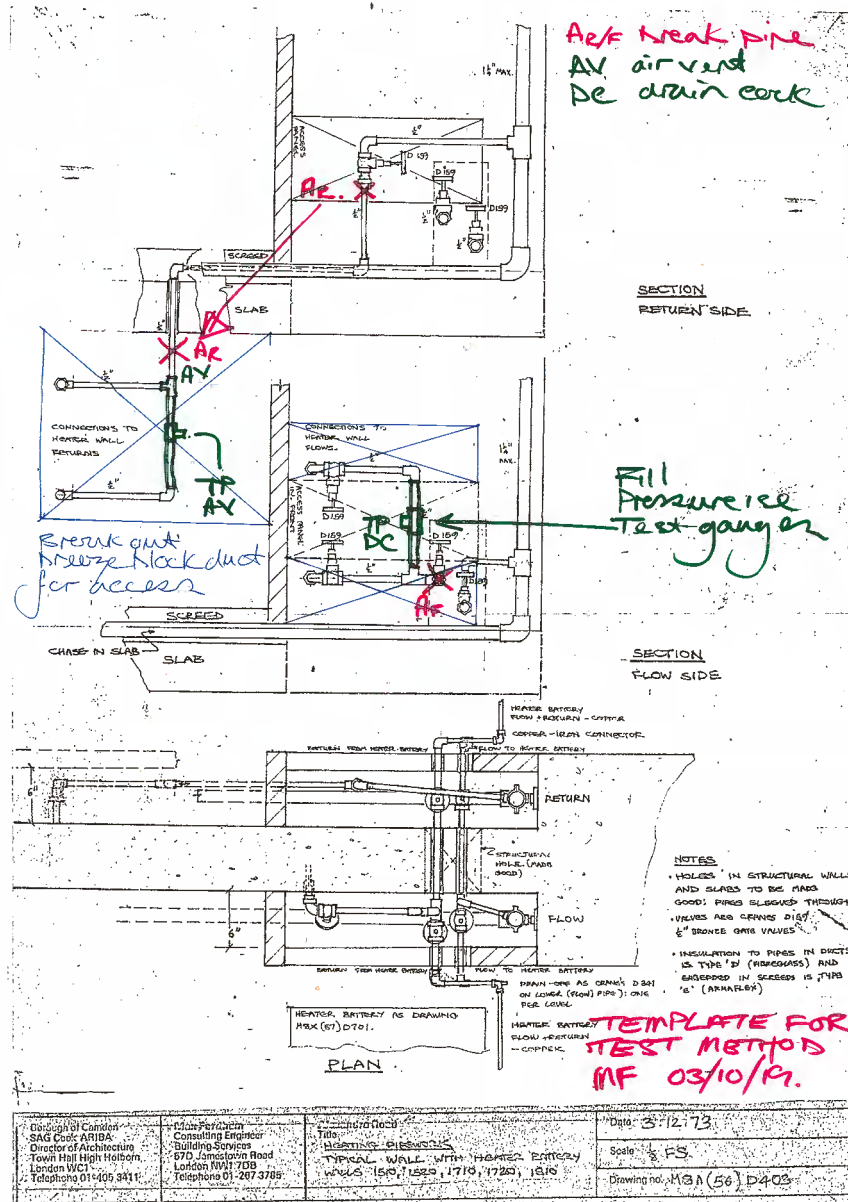 AR/F break pipe
AV air vent
DC drain cock
1¼" MAX.
½"
ACCESS PANEL
D 159
D159
D159
AR.
½"
½"
½"
SCREED
SLAB
SECTION
RETURN SIDE
AR
AV
½"
CONNECTIONS TO
HEATER WALL
RETURNS
½"
TP
AV
Break out
breeze block duct
for access
CONNECTIONS TO
HEATER WALL
FLOWS.
½"
1¼"
MAX.
ACCESS PANEL
IN FRONT
D159
D159
TP
DC
D159
D159
½"
AF
Fill
Pressureise
Test gauges
SCREED
CHASE IN SLAB
SLAB
SECTION
FLOW SIDE
HEATER BATTERY
FLOW + RETURN - COPPER
COPPER-IRON CONNECTOR
RETURN FROM HEATER BATTERY
FLOW TO HEATER BATTERY
6"
RETURN
STRUCTURAL
HOLE (MADE
GOOD)
6"
FLOW
RETURN FROM HEATER BATTERY
FLOW TO HEATER BATTERY
DRAIN-OFF AS CRANE'S D 341
ON LOWER (FLOW) PIPE): ONE
PER LEVEL
HEATER BATTERY
FLOW + RETURN
- COPPER
HEATER BATTERY AS DRAWING
M3X (57) D701.
PLAN
NOTES
• HOLES IN STRUCTURAL WALLS
AND SLABS TO BE MADE
GOOD: PIPES SLEEVED THROUGH
• VALVES ARE CRANES D159
½" BRONZE GATE VALVES
• INSULATION TO PIPES IN DUCTS
IS TYPE 'D' (FIBREGLASS) AND
EMBEDDED IN SCREEDS IS TYPE
'E' (ARMAFLEX)
TEMPLATE FOR
TEST METHOD
MF 03/10/19.
Borough of Camden
SAG Cook ARIBA
Director of Architecture
Town Hall High Holborn
London WC1
Telephone 01-405 3411
Consulting Engineer
Building Services
67D Jamestown Road
London NW1 7DB
Telephone 01-267 3785
Road
Title
HEATING PIPEWORK
TYPICAL WALL WITH HEATER BATTERY
WALLS 1510, 1520, 1710, 1720, 1810
Date 3.12.73
Scale ⅛ FS
Drawing no. M3A (56) D403